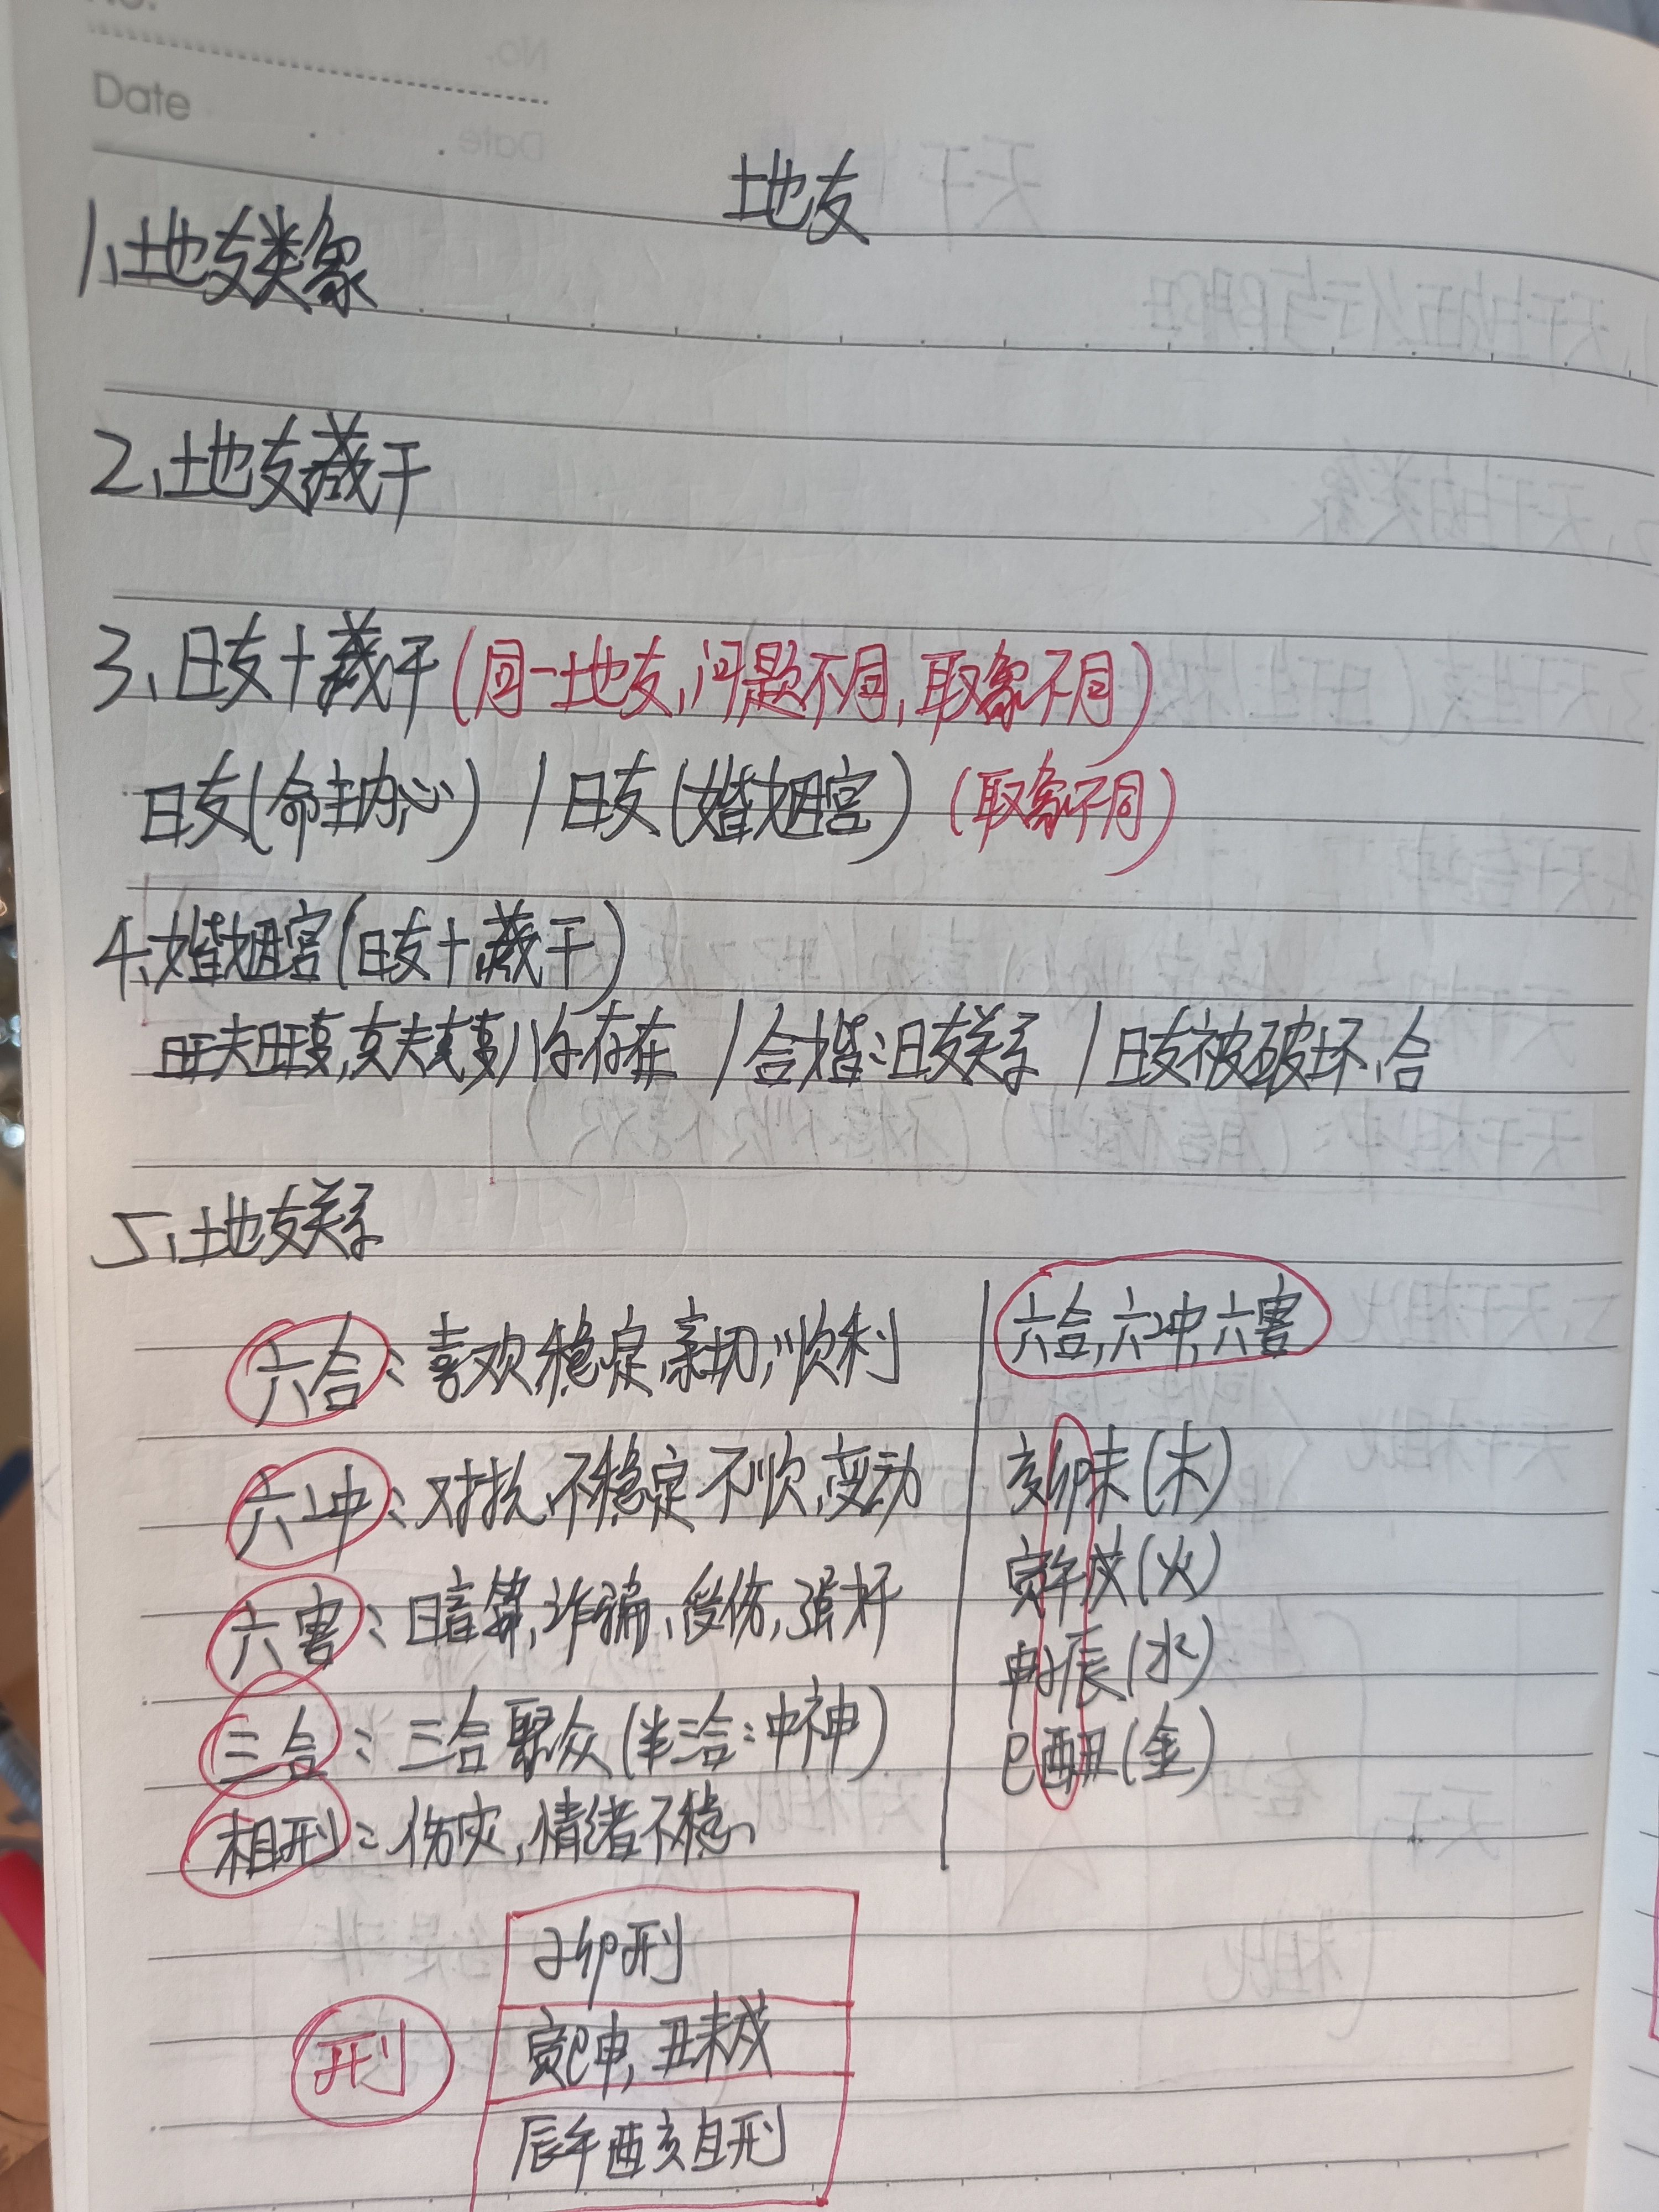 Date
地支
1、地支类象
2、地支藏干
3、日支+藏干(同一地支,问题不同,取象不同)
日支(命主内心) / 日支(婚姻宫) (取象不同)
4、婚姻宫(日支+藏干)
旺夫旺妻,克夫克妻,不存在 / 合婚:日支关系 / 日支被破坏,合
5、地支关系
六合:喜欢,稳定,亲切,顺利
六冲:对抗,不稳定,不顺,变动
六害:暗算,诈骗,受伤,强奸
三合:三合聚众(半三合:中神)
相刑:伤灾,情绪不稳、
六合,六冲,六害
亥卯未(木)
寅午戌(火)
申子辰(水)
巳酉丑(金)
刑
子卯刑
寅巳申,丑未戌
辰午酉亥自刑